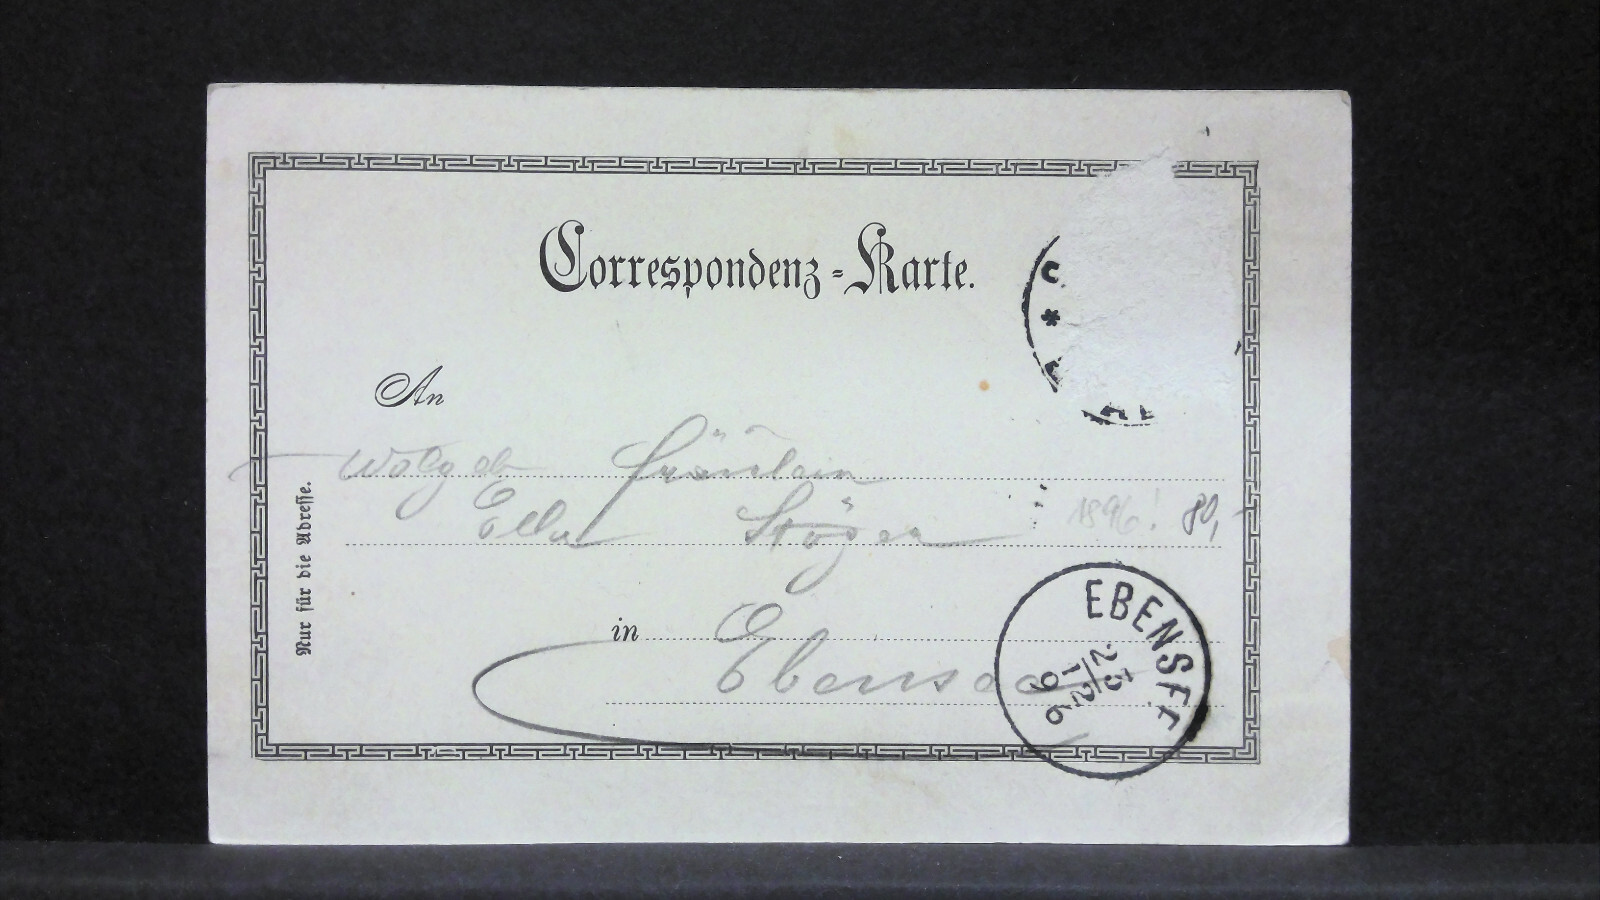 Correspondenz-Karte.
An
Wolgeb Fräulein
Ella Stöger
1896! 80,-
in Ebensee
Nur für die Adresse.
EBENSEE
25/12
96